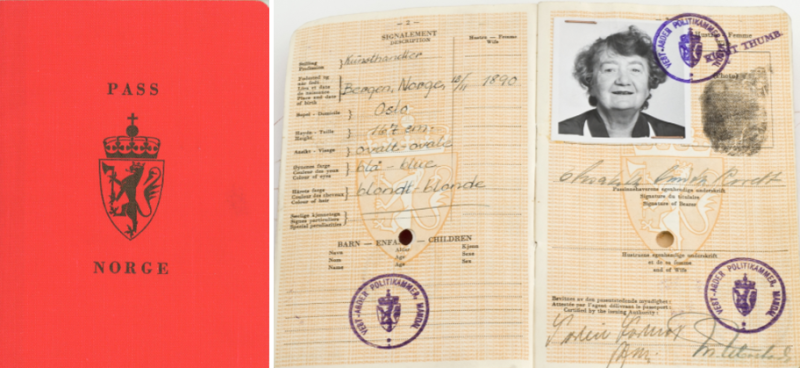 PASS
NORGE
— 2 —
SIGNALEMENT
DESCRIPTION
Hustru - Femme
Wife
Stilling
Profession
Kunsthandler
Fødested og
Lieu et date
de naissance
Place and date
of birth
Bergen, Norge, 18/11 1890
Bopel - Domicile
Oslo
Høyde - Taille
Height
167 cm.
Ansikt - Visage
ovalt-ovale
Øynenes farge
Couleur des yeux
Colour of eyes
blå - blue
Hårets farge
Couleur des cheveux
Colour of hair
blondt-blonde
Særlige kjennetegn
Signes particuliers
Special peculiarities
BARN — ENFANTS — CHILDREN
Navn
Nom
Name
Alder
Age
Age
Kjønn
Sexe
Sex
VEST-AGDER POLITIKAMMER, MANDAL
Hustru - Femme
VEST-AGDER POLITIKAMMER, MANDAL
RIGHT THUMB.
Passinnehaverens egenhendige underskrift
Signature du titulaire
Signature of Bearer
Hustruens egenhendige underskrift
et de sa femme
and of Wife
Bevitnes av den passutstedende myndighet:
Attesté par l'agent délivrant le passeport:
Certified by the issuing Authority:
VEST-AGDER POLITIKAMMER, MANDAL